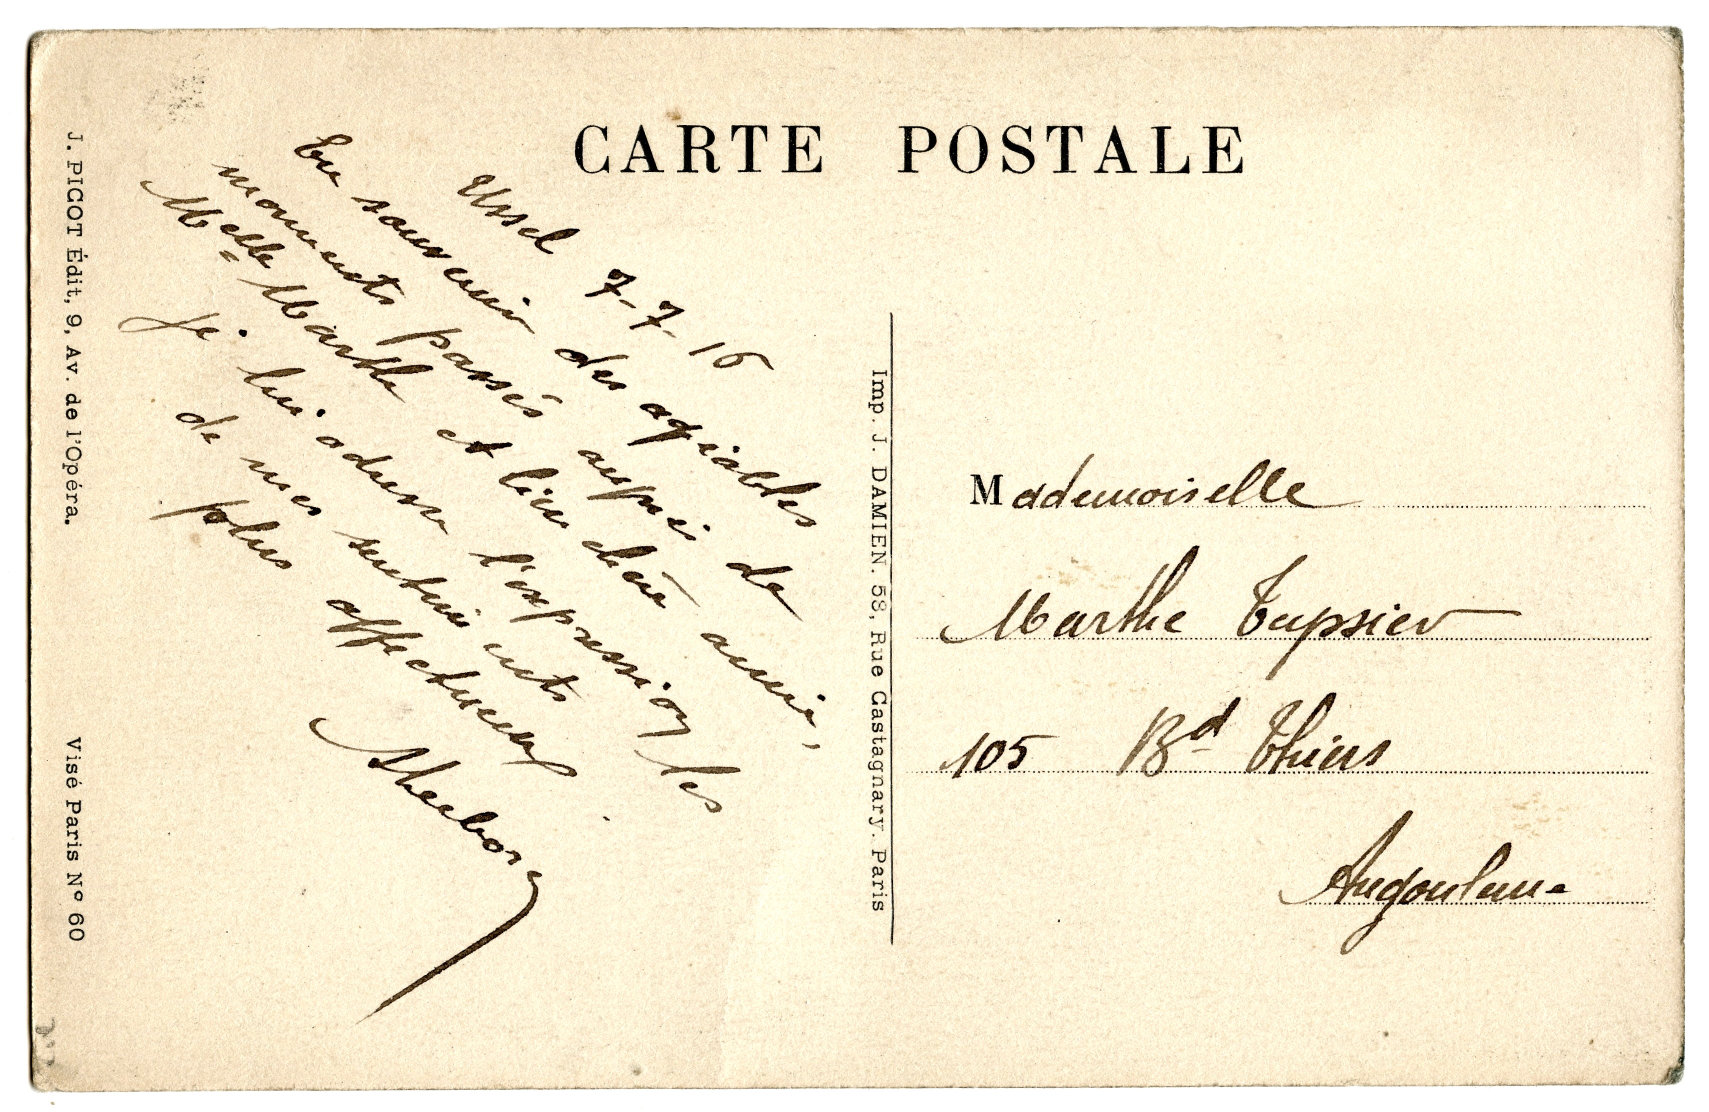 CARTE POSTALE
Ussel 7-7-16
En souvenir des agréables
moments passés auprès de
Melle Marthe et bien chère amie,
je lui adresse l'expression les
de mes sentiments
plus affectueux
J. PICOT Édit, 9, Av. de l'Opéra.
Visé Paris Nº 60
Imp. J. DAMIEN. 58, Rue Castagnary. Paris
Mademoiselle
Marthe
105 Bd Thiers
Angoulême